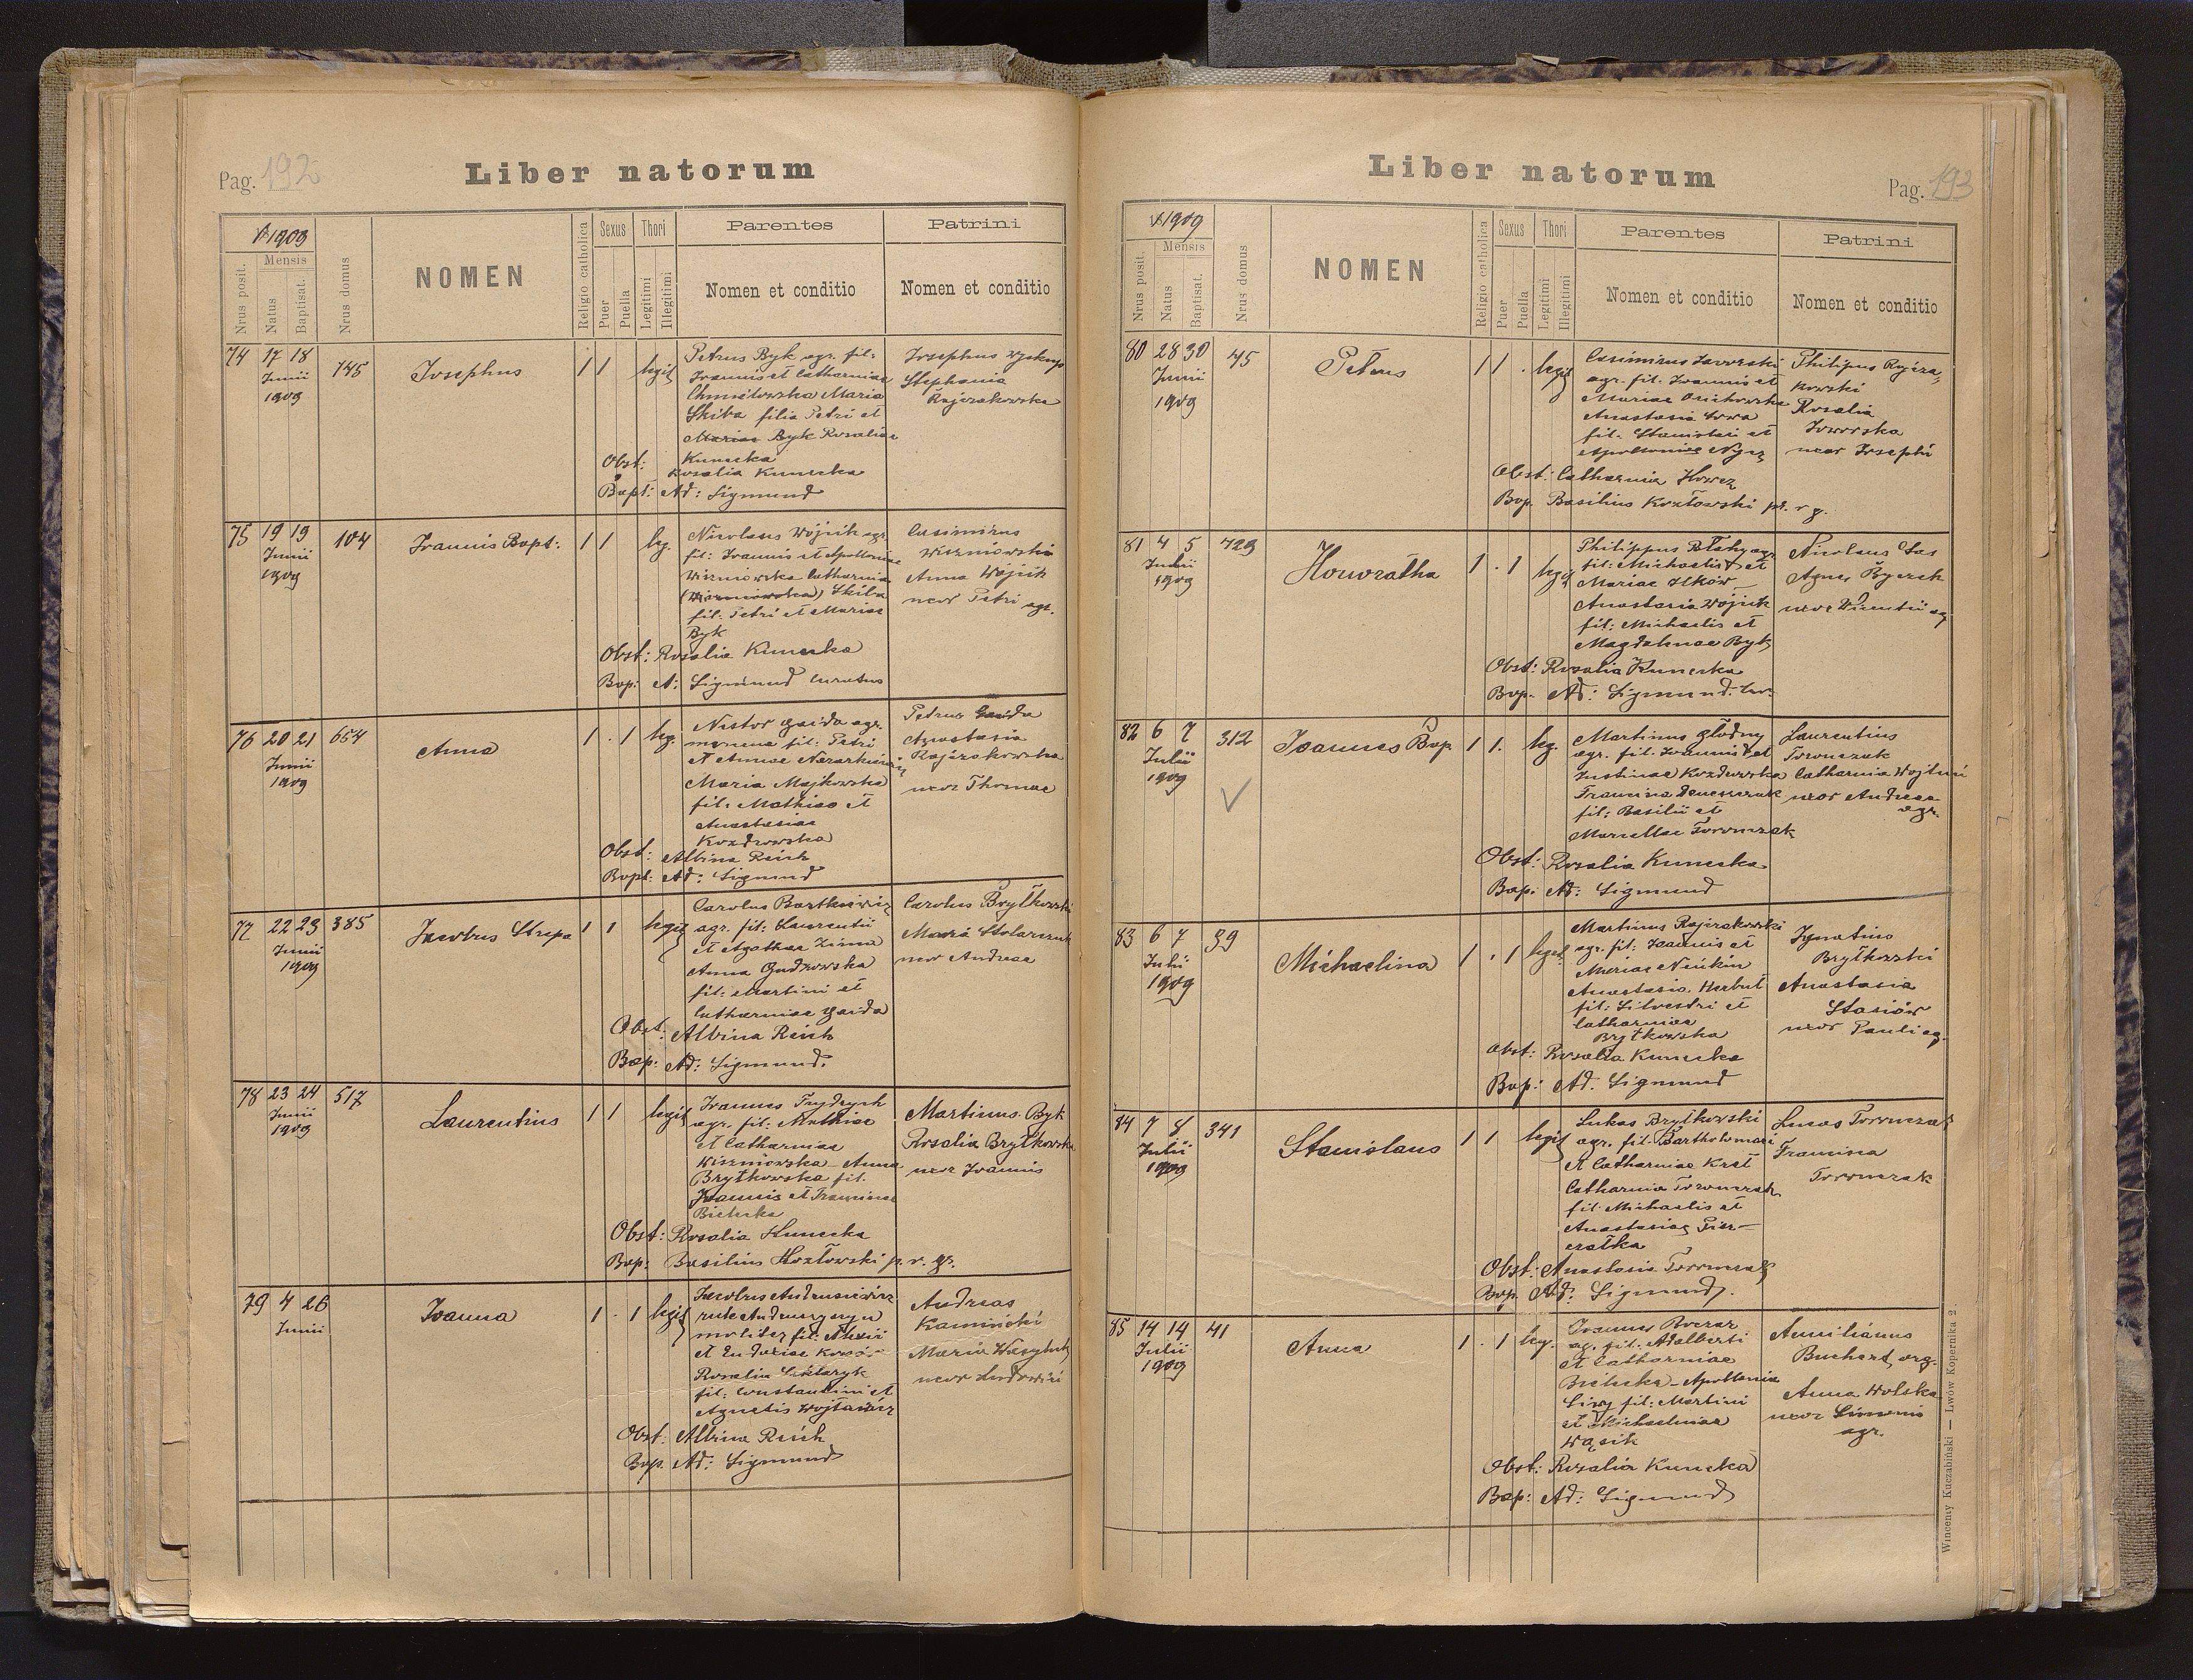 Pag. 192
Liber natorum
1909
Nrus posit.
Mensis
Natus
Baptisat.
Nrus domus
NOMEN
Religio catholica
Sexus
Puer
Puella
Thori
Legitimi
Illegitimi
Parentes
Nomen et conditio
Patrini
Nomen et conditio
74 17 18
Junii
1909
145
Josephus
1 1 legit
Petrus Byk agr. fil:
Joannis et Catharniae
Chmilowska Maria
Skiba filia Petri et
Mariae Byk Rosaliae
Kunecka
Josephus
Stephania
Rajzakowska
Obst: Rosalia Kunecka
Bapt: Ad: Sigmund
75 19 19
Junii
1909
104
Joannis Bapt:
1 1 leg.
Nicolaus Wójcik agr.
fil: Joannis et Apolloniae
Wiszniowska Catharnia
(Wiszniowska) Skiba
fil: Petri et Mariae
Byk
Casimirus
Wiszniowski
Anna Wójcik
uxor Petri agr.
Obst: Rosalia Kunecka
Bap: A: Sigmund curatus
76 20 21
Junii
1909
654
Anna
1 . 1 leg.
Nestor Gaida agr.
fil: Petri
et Annae
Maria Majkowska
fil: Mathiae et
Anastasiae
Kozdrowska
Petrus Gaida
Anastasia
Rajzakowska
uxor Thomae
Obst: Albina Reich
Bapt: Ad: Sigmund
77 22 23
Junii
1909
385
Jacobus Strepa
1 1 legit
Carolus Bartkiewicz
agr. fil: Laurentii
et Agathae Zima
Anna Gudzowska
fil: Martini et
Catharniae Gaida
Carolus Brytkowski
Maria Stolarczuk
uxor Andreae
Obst: Albina Reich
Bap: Ad: Sigmund.
78 23 24
Junii
1909
517
Laurentius
1 1 legit
Joannes Frydrych
agr. fil: Mathiae
et Catharniae
Wiszniowska - Anna
Brytkowska fil.
Joannis et Franciscae
Bielecka
Martinus Byk
Rosalia Brytkowska
uxor Joannis
Obst: Rosalia Kunecka
Bap: Basilius Kozłowski p. r. gr.
79 4 26
Junii
Joanna
1 . 1 legit
Jacobus Andrusiewicz
molitor fil: Alexii
et Eudoxiae
Rosalia
fil: Constantini et
Agnetis Wojtowicz
Andreas
Kaminski
Maria Wasyluk
uxor Ludovici
Obst. Albina Reich
Bap. Ad: Sigmund
Liber natorum
Pag. 193
1909
Nrus posit.
Mensis
Natus
Baptisat.
Nrus domus
NOMEN
Religio catholica
Sexus
Puer
Puella
Thori
Legitimi
Illegitimi
Parentes
Nomen et conditio
Patrini
Nomen et conditio
80 28 30
Junii
1909
45
Petrus
1 1 . legit
Casimirus Jaworski
agr. fil. Joannis et
Mariae
Anastasia Sowa
fil. Stanislai et
Apolloniae
Philipus Rajza-
kowski
Rosalia
Jaworska
uxor Josephi
Obst: Catharnia
Bap. Basilius Kozłowski pr. r g.
81 4 5
Julii
1909
729
Honoratha
1 . 1 legit
Philippus Błahy agr.
fil: Michaelis et
Mariae Ilków
Anastasia Wójcik
fil: Michaelis et
Magdalenae Byk
Nicolaus Sas
Agnes
uxor Vincentii ag
Obst: Rosalia Kunecka
Bap. Ad: Sigmund. cur.
82 6 7
Julii
1909
312
Joannes Bap
1 1. leg.
Martinus Głodny
agr. fil. Joannis et
Justinae Kozdrowska
Francisca
fil: Basilii et
Marcellae Toronczak
Laurentius
Toronczak
Catharnia
uxor Andreae
agr.
Obst: Rosalia Kunecka
Bap: Ad: Sigmund
83 6 7
Julii
1909
39
Michaelina
1 . 1 legit
Martinus Rajzakowski
agr. fil: Joannis et
Mariae
Anastasia Herbut
fil: Silvestri et
Catharniae
Brytkowska
Ignatius
Brytkowski
Anastasia
Stasiów
uxor Pauli ag.
Obst: Rosalia Kunecka
Bap: Ad. Sigmund
84 7 8
Julii
1909
341
Stanislaus
1 1 legit
Lukas Brytkowski
agr. fil. Bartholomaei
et Catharniae Kret
Catharnia Toronczak
fil Michaelis et
Anastasiae
Lucas Toronczak
Francisca
Toronczak
Obst: Anastasia Toronczak
Bap. Ad: Sigmund.
85 14 14
Julii
1909
41
Anna
1 . 1 leg.
Joannes
ag. fil. Adalberti
et Catharniae
Bielecka - Apollonia
fil: Martini
et Michaelinae
Wąsik
Aemilianus
Buchert, org.
Anna Wolska
uxor Simonis
agr.
Obst: Rosalia Kunecka
Bap: Ad: Sigmund
Winceny Kuczabiński — Lwów Kopernika 2.